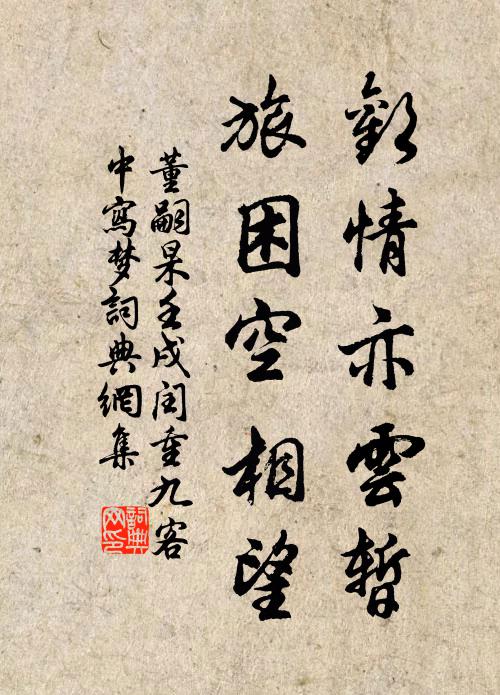 歡情亦雲暫
旅困空相望
董嗣杲壬戌閏重九客
中寫梦詞典網集
詞典
网印